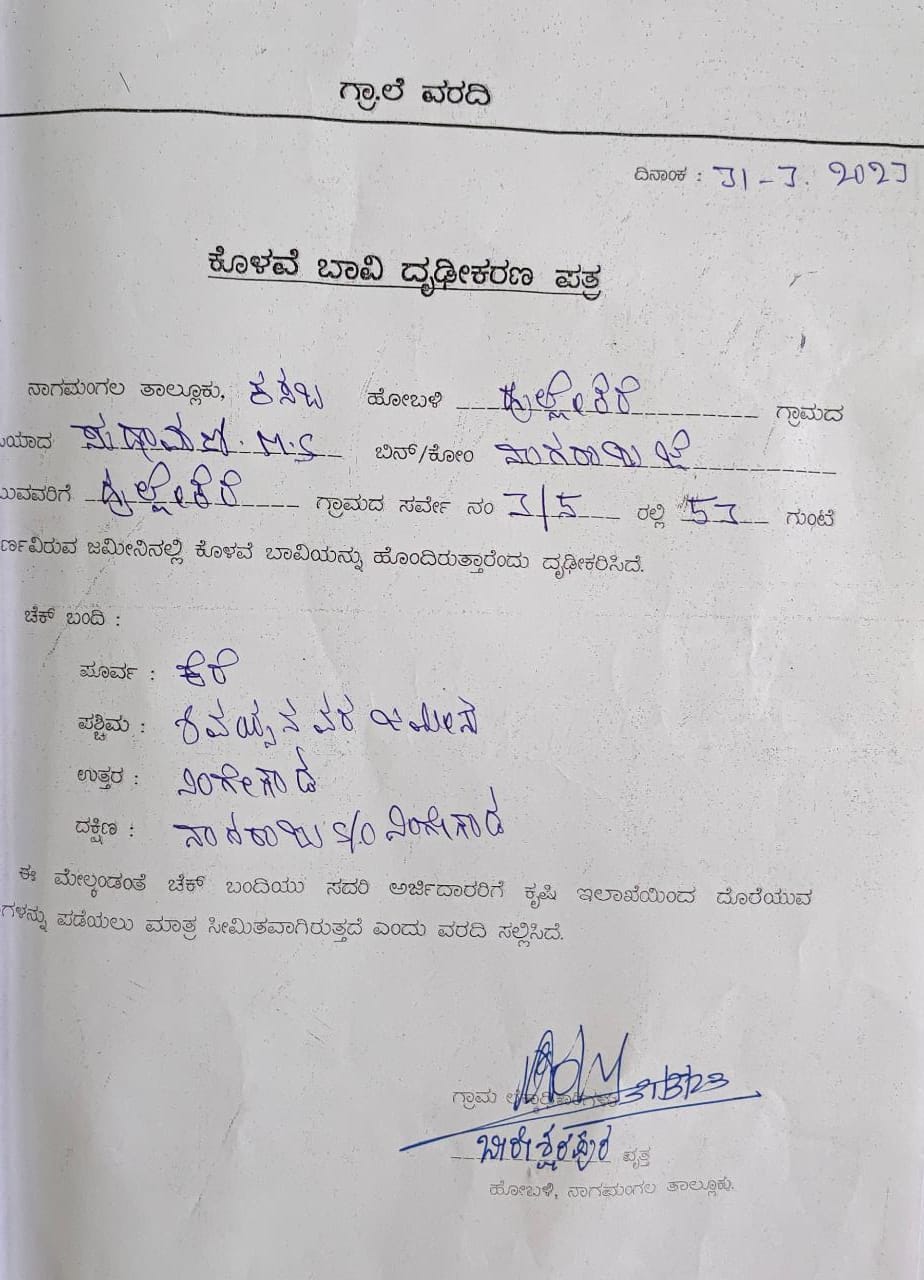 ಗ್ರಾ.ಲೆ ವರದಿ
ದಿನಾಂಕ : 31-3. 2023
ಕೊಳವೆ ಬಾವಿ ದೃಢೀಕರಣ ಪತ್ರ
ನಾಗಮಂಗಲ ತಾಲ್ಲೂಕು, ಕಸಬ ಹೋಬಳಿ ಗ್ರಾಮದ
ಯಾದ M.S ಬಿನ್/ಕೋಂ
ುವವರಿಗೆ ಗ್ರಾಮದ ಸರ್ವೇ ನಂ 3/5 ರಲ್ಲಿ 53 ಗುಂಟೆ
ರ್ಣವಿರುವ ಜಮೀನಿನಲ್ಲಿ ಕೊಳವೆ ಬಾವಿಯನ್ನು ಹೊಂದಿರುತ್ತಾರೆಂದು ದೃಢೀಕರಿಸಿದೆ.
ಚೆಕ್ ಬಂದಿ :
ಪೂರ್ವ : ಕೆರೆ
ಪಶ್ಚಿಮ : ಜಮೀನು
ಉತ್ತರ : ನಿಂಗೇಗೌಡ
ದಕ್ಷಿಣ : ನಾಗರಾಜು S/O ನಿಂಗೇಗೌಡ
ಈ ಮೇಲ್ಕಂಡಂತೆ ಚೆಕ್ ಬಂದಿಯು ಸದರಿ ಅರ್ಜಿದಾರರಿಗೆ ಕೃಷಿ ಇಲಾಖೆಯಿಂದ ದೊರೆಯುವ
ಗಳನ್ನು ಪಡೆಯಲು ಮಾತ್ರ ಸೀಮಿತವಾಗಿರುತ್ತದೆ ಎಂದು ವರದಿ ಸಲ್ಲಿಸಿದೆ.
ಗ್ರಾಮ
ವೃತ್ತ
ಹೋಬಳಿ, ನಾಗಮಂಗಲ ತಾಲ್ಲೂಕು.